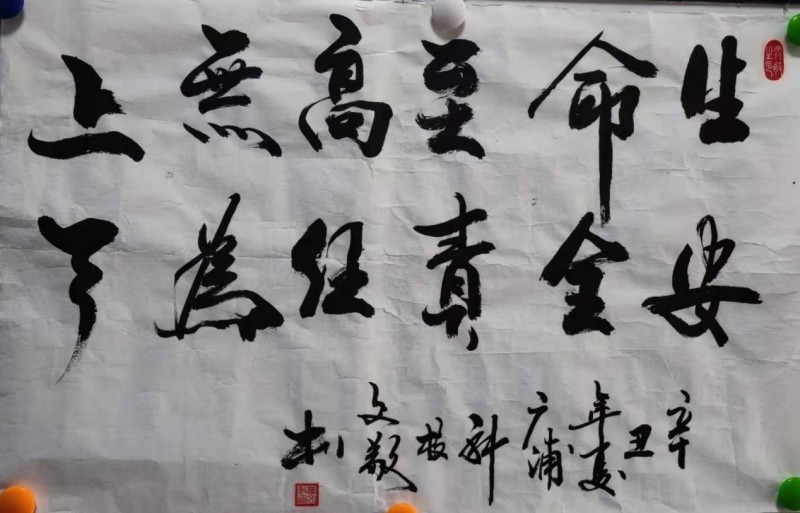 生命至高無上
安全責任為天
辛丑年夏广浦科技文敬